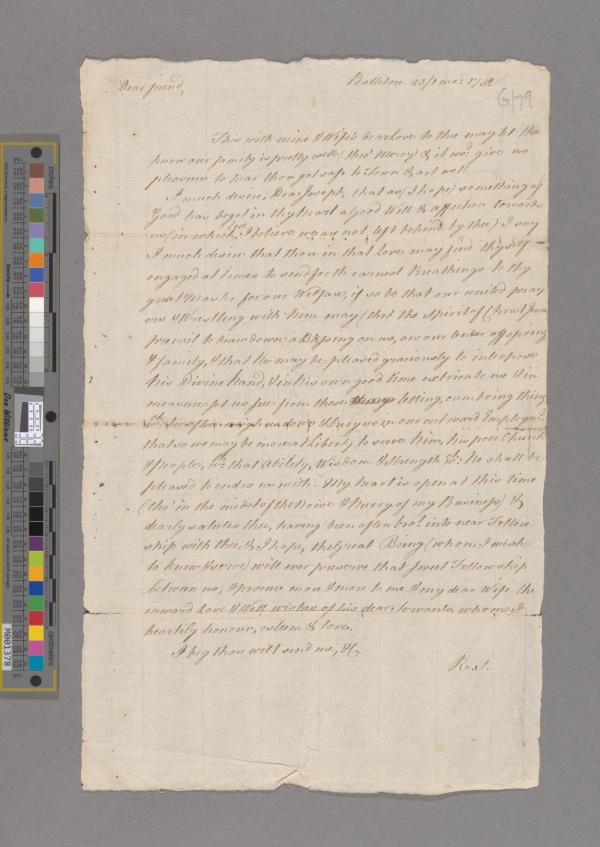 Dear friend,
23/1 mo: 17
G/79
This with mine & Wife's dear Love to thee may let thee
know our family is pretty well (thro' Mercy) & it wo.d give us
pleasure to hear thou got safe to Town & art well
I much desire, Dear Joseph, that as (I hope) something of
Good has begot in thy Heart a Good Will & affection towards
us (in which I believe we are not left behind by thee) I say
I much desire that thou in that Love may find thyself
engaged at times to send forth earnest Breathings to thy
great Master for our Welfare, if so be that our united pray
ers & Wrestling with him may (thro' the Spirit of Christ Jesus
prevail to draw down a Blessing on us, on our tender offspring
& family, & that he may be pleased graciously to interpose
his Divine Hand, & in his own good time extricate us & in
measure set us free from these letting, cumbring things
so often weigh us down & fatigue in our outward Employm.t
that so we may be more at Liberty to serve him, his poor Church
& People, in that Ability, Wisdom & strength wch. he shall be
pleased to endue us with. My heart is open at this time
(tho' in the midst of the Noise & Hurry of my Business) &
dearly salutes thee, having been often bro.t into near Fellow
ship with thee, & I hope, the Great Being (whom I wish
to know & serve) will ever preserve that sweet Fellowship
between us, & procure more & more to me & my dear Wife the
inward Love & Well wishes of his dear Servants whom I
heartily honour, esteem & love.
I beg thou will send me, &c
R. S.
inches
centimetres
Don Williams
M001378